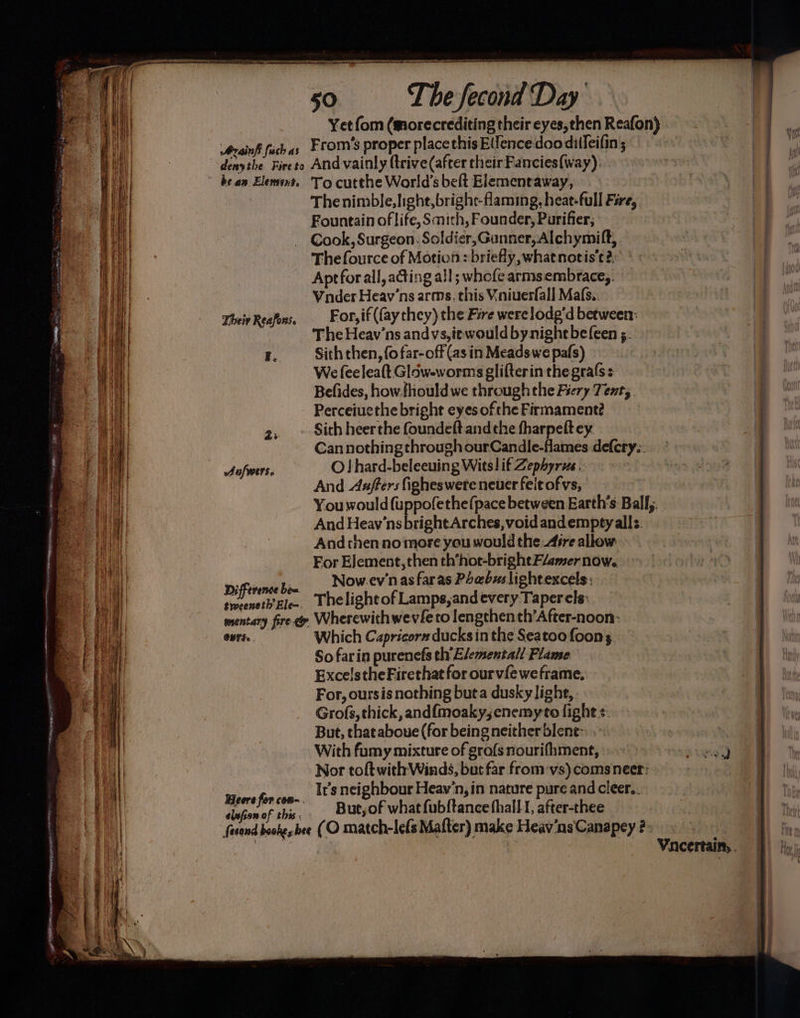 50 The ſecond Day
Yet ſom (more crediting their eyes, then Reaſon)
Againſt ſuch as From's proper place this Eſſence doo diſſeiſin;
deny the Fire to And vainly ſtrive (after their Fancies ſway)
be an Element. To cut the World's beſt Element away,
The nimble, light, bright-flaming, heat-full Fire,
Fountain of life, Smith, Founder, Purifier,
Cook, Surgeon, Soldier, Gunner, Alchymiſt,
The ſource of Motion: briefly, what not is't?
Apt for all, acting all; whoſe arms embrace,
Vnder Heav'ns arms, this Vniuerſall Maſs.
Their Reaſons. For, if (ſay they) the Fire were lodg'd between
The Heav'ns and vs, it would by night be ſeen;
1. Sith then, ſo far-off (as in Meads we paſs)
We ſee leaſt Glow-worms gliſter in the graſs:
Beſides, how ſhould we through the Fiery Tent,
Perceiue the bright eyes of the Firmament?
2. Sith heer the ſoundeſt and the ſharpeſt ey
Can nothing through our Candle-flames deſcry.
Anſwers. O! hard-beleeuing Wits! if Zephyrus
And Auſters ſighes were neuer felt of vs,
You would ſuppoſe the ſpace between Earth's Ball,
And Heav'ns bright Arches, void and empty all:
And then no more you would the Aire allow
For Element, then th'hot-bright Flamer now.
Difference be- Now ev'n as far as Phœbus light excels
tween th'Ele- The light of Lamps, and every Taper els
mentary fire & Wherewith we vſe to lengthen th'After-noon
ours. Which Capricorn ducks in the Sea too ſoon;
So far in pureneſs th'Elementall Flame
Excels the Fire that for our vſe we frame.
For, ours is nothing but a dusky light,
Groſs, thick, and ſmoaky, enemy to ſight:
But, that aboue (for being neither blent
With fumy mixture of groſs nouriſhment,
Nor toſt with Winds, but far from vs) coms neer
It's neighbour Heav'n, in nature pure and cleer.
Heere for con- But, of what ſubſtance ſhall I, after-thee
cluſion of this
ſecond booke, hee (O match-leſs Maſter) make Heav'ns Canapey?
Vncertain,